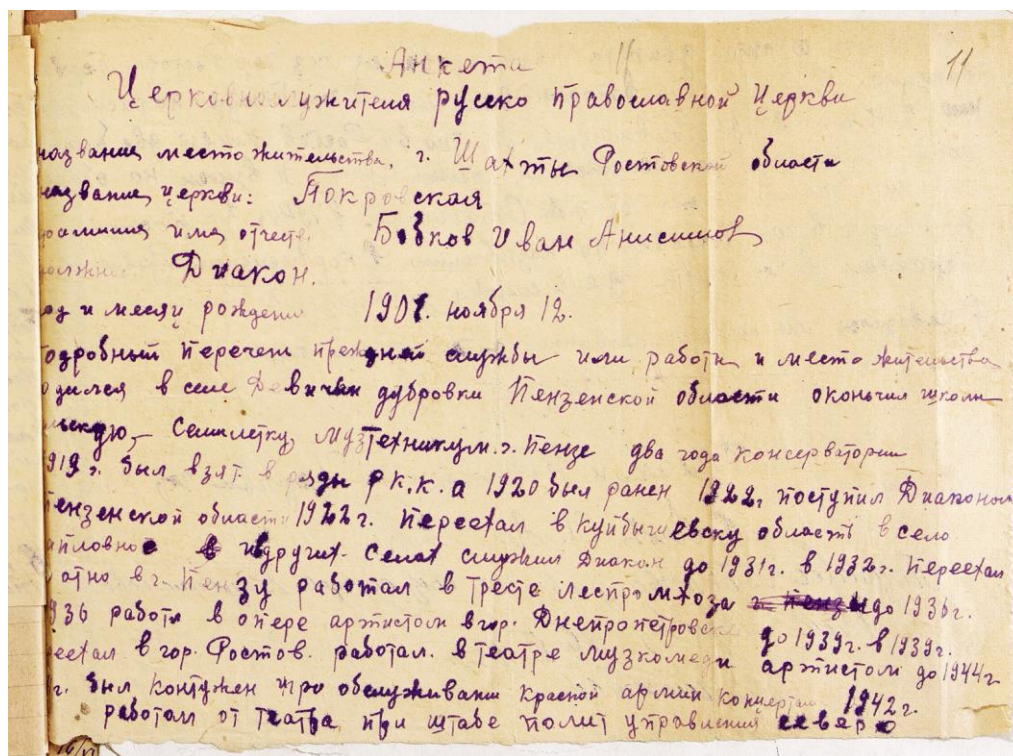 Анкета 11
Церковнослужителя русско православной Церкви
название место жительства. г. Шахты Ростовской области
название церкви: Покровская
фамилия имя отчеств. Бобков Иван Анисимов
должнос. Диакон.
од и месяц рождени 1901. ноября 12.
одробный перечен прежней службы или работы и место жительства
одился в селе Девичьи дубровки Пензенской области окончил школи
льскую, Семилетку, музтехникум. г. Пензе два года консерватории
919 г. был взят в ряды Р К.К. а 1920 был ранен 1922 г поступил Диаконом
ензенской области 1922 г. переехал в куйбышевску область в село
и в других селах служил Диакон до 1931 г. в 1932 г. переехал
атно в г. Пензу работал в тресте леспромхоза до 1936 г.
936 работа в опере артистом в гор. Днепропетровске до 1939 г. в 1939 г.
реехал в гор. Ростов. работал. в театре музкомеди артистом до 1944 г
г. был контужен при обслуживании красной армии концертам 1942 г.
работал от театра при штабе полит управления северо